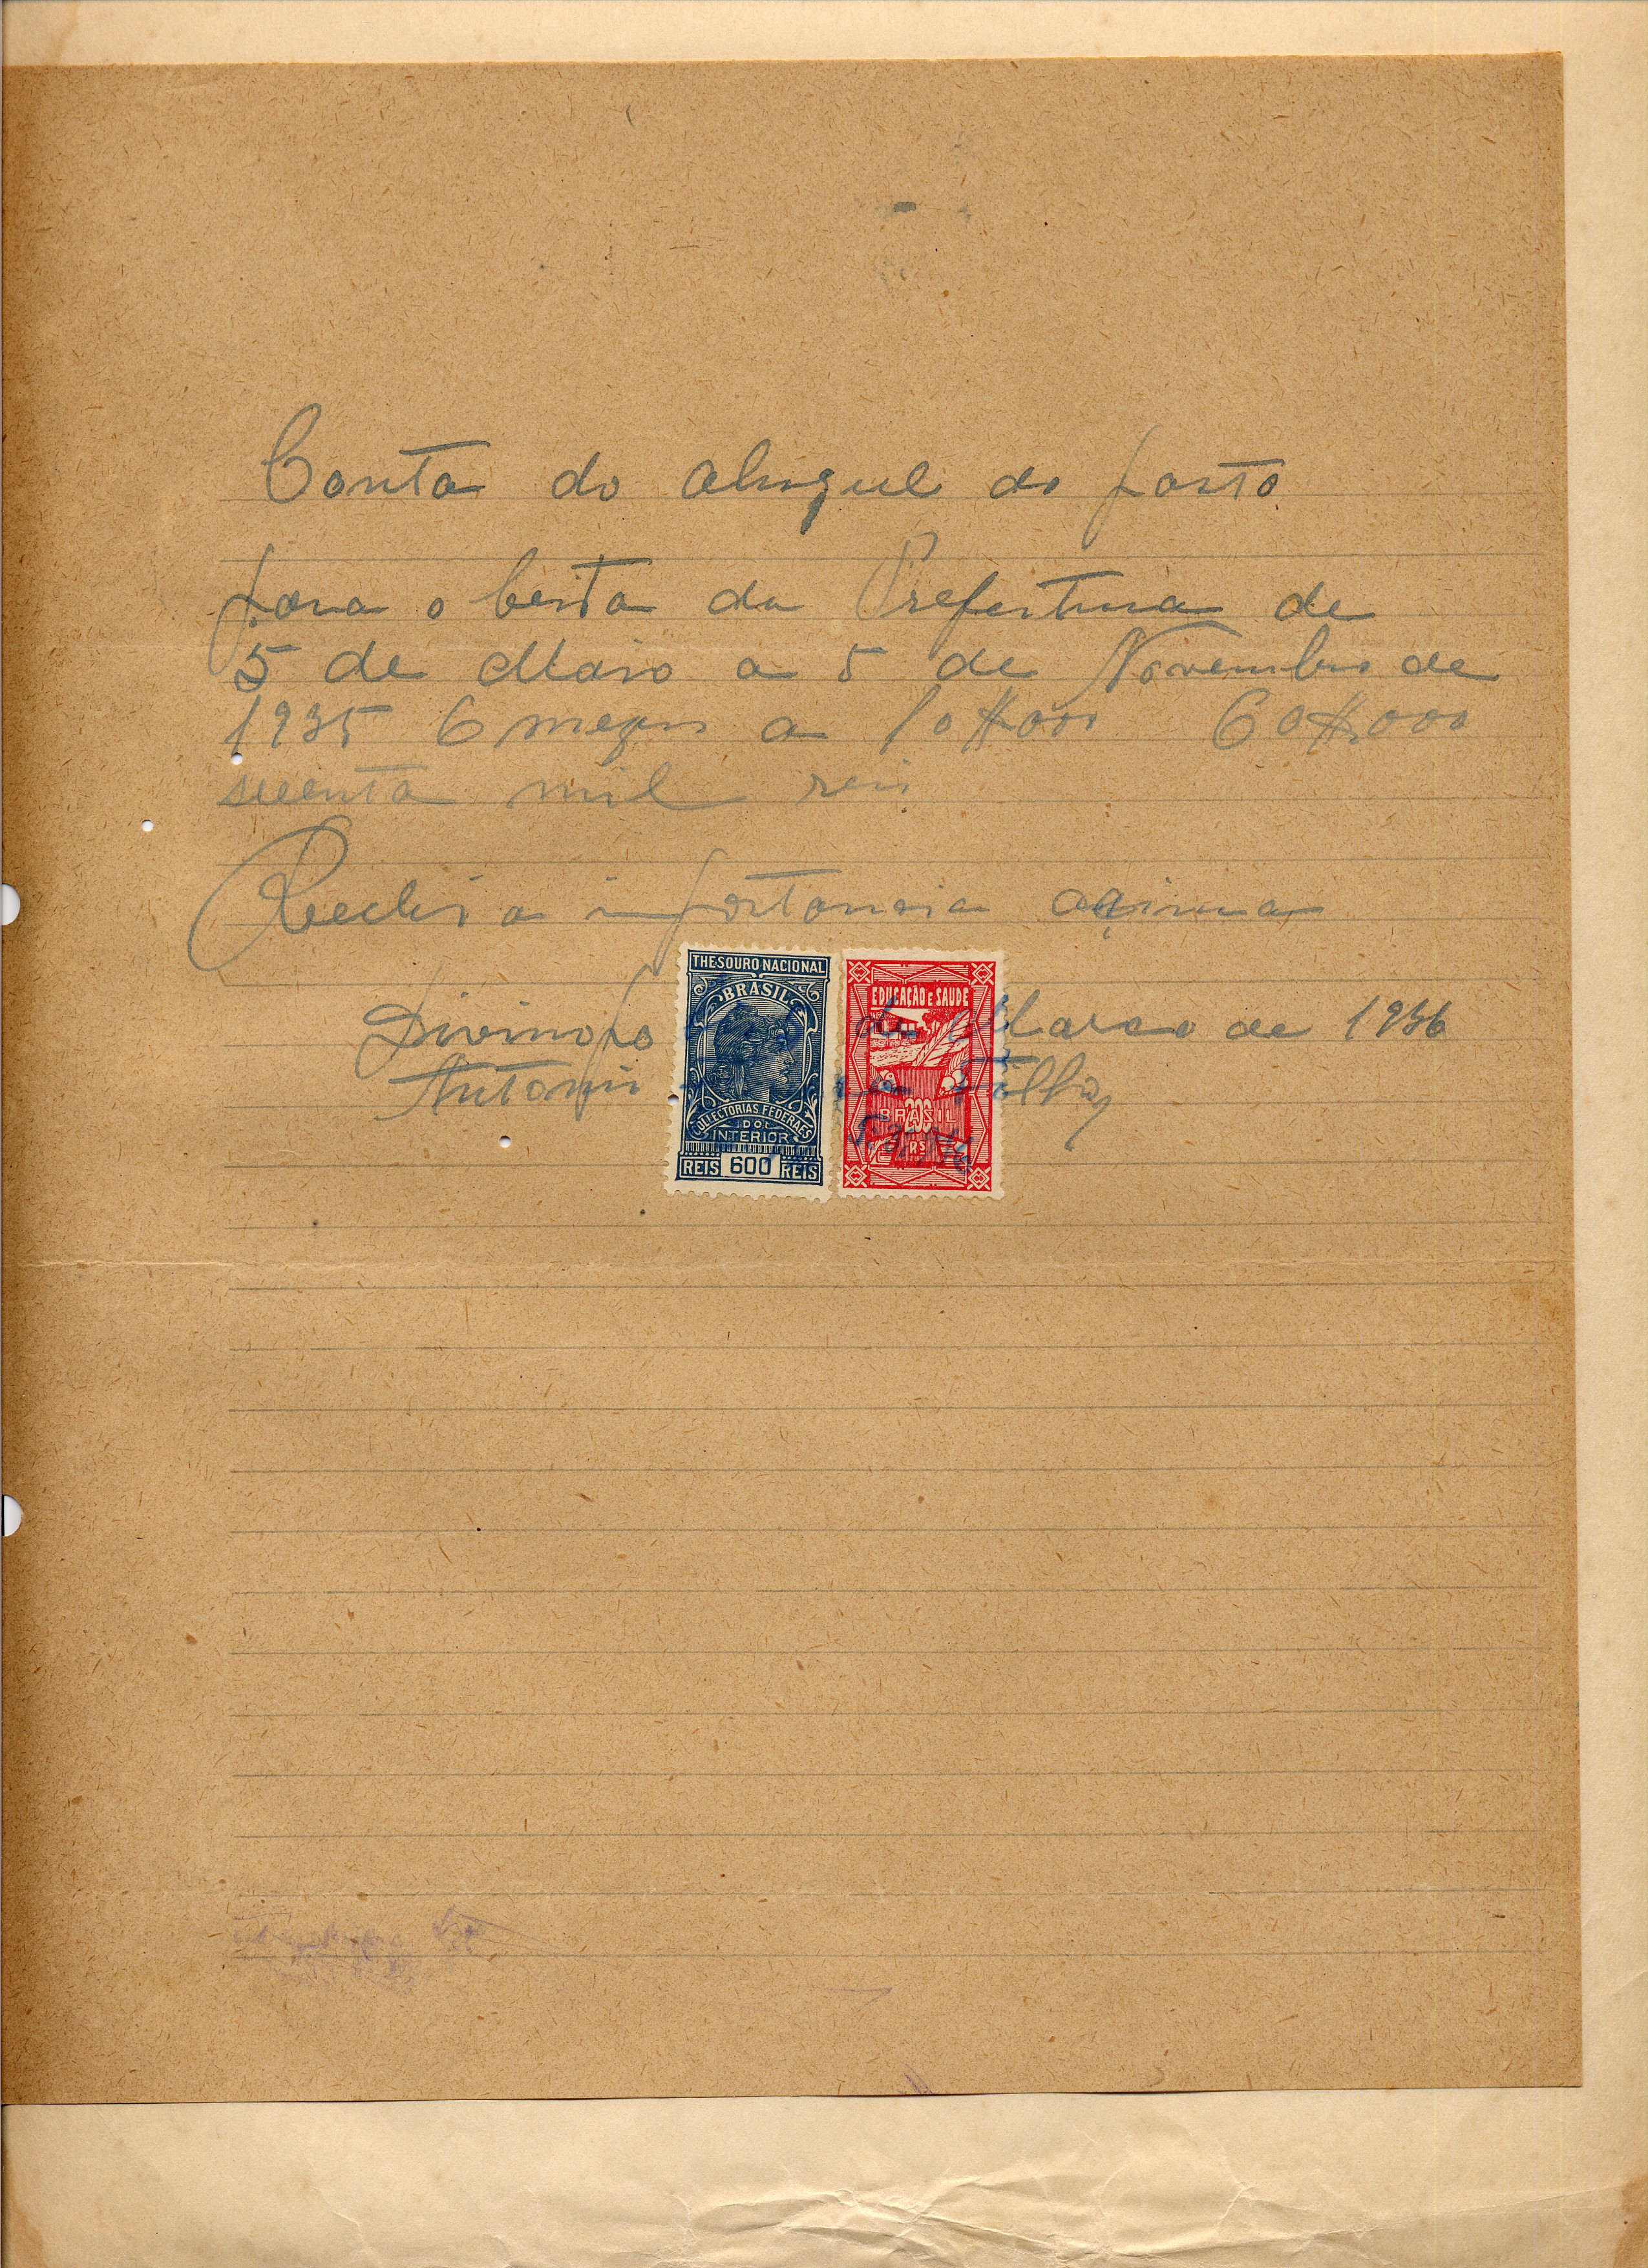 Conta do aluguel do pasto
para o besta da Prefeitura de
5 de Maio a 5 de Novembro de
1935 6 mezes a 10$000 60$000
secenta mil reis
Recebi a importancia acima
THESOURO NACIONAL
BRASIL
COLLECTORIAS FEDERAES
DO
INTERIOR
REIS 600 REIS
EDUCAÇÃO E SAUDE
200
BRASIL
RS
Divinopo de Março de 1936
Antonio Filho